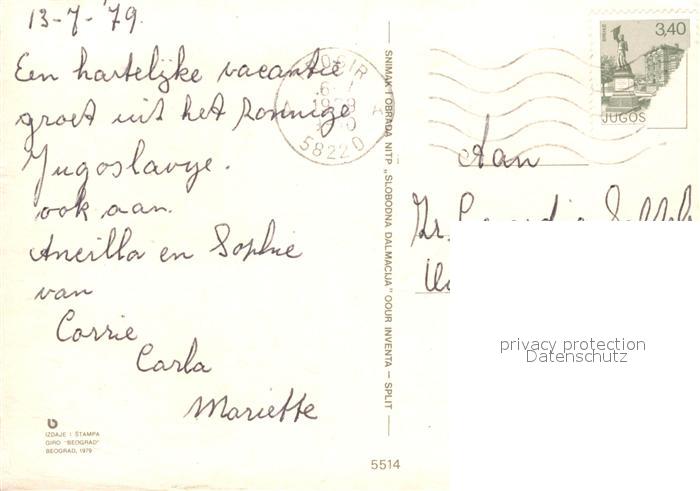 13-7-'79.
Een hartelijke vacantie
groet uit het zonnige
Yugoslavije.
ook aan.
Ancilla en Sophie
van
Corrie
Carla
Mariette
IZDAJE I ŠTAMPA
GIRO "BEOGRAD"
BEOGRAD, 1979
SNIMAK I OBRADA NITP „SLOBODNA DALMACIJA" OOUR INVENTA – SPLIT
5514
58220
3,40
JUGOS
Aan
Zr.
privacy protection
Datenschutz